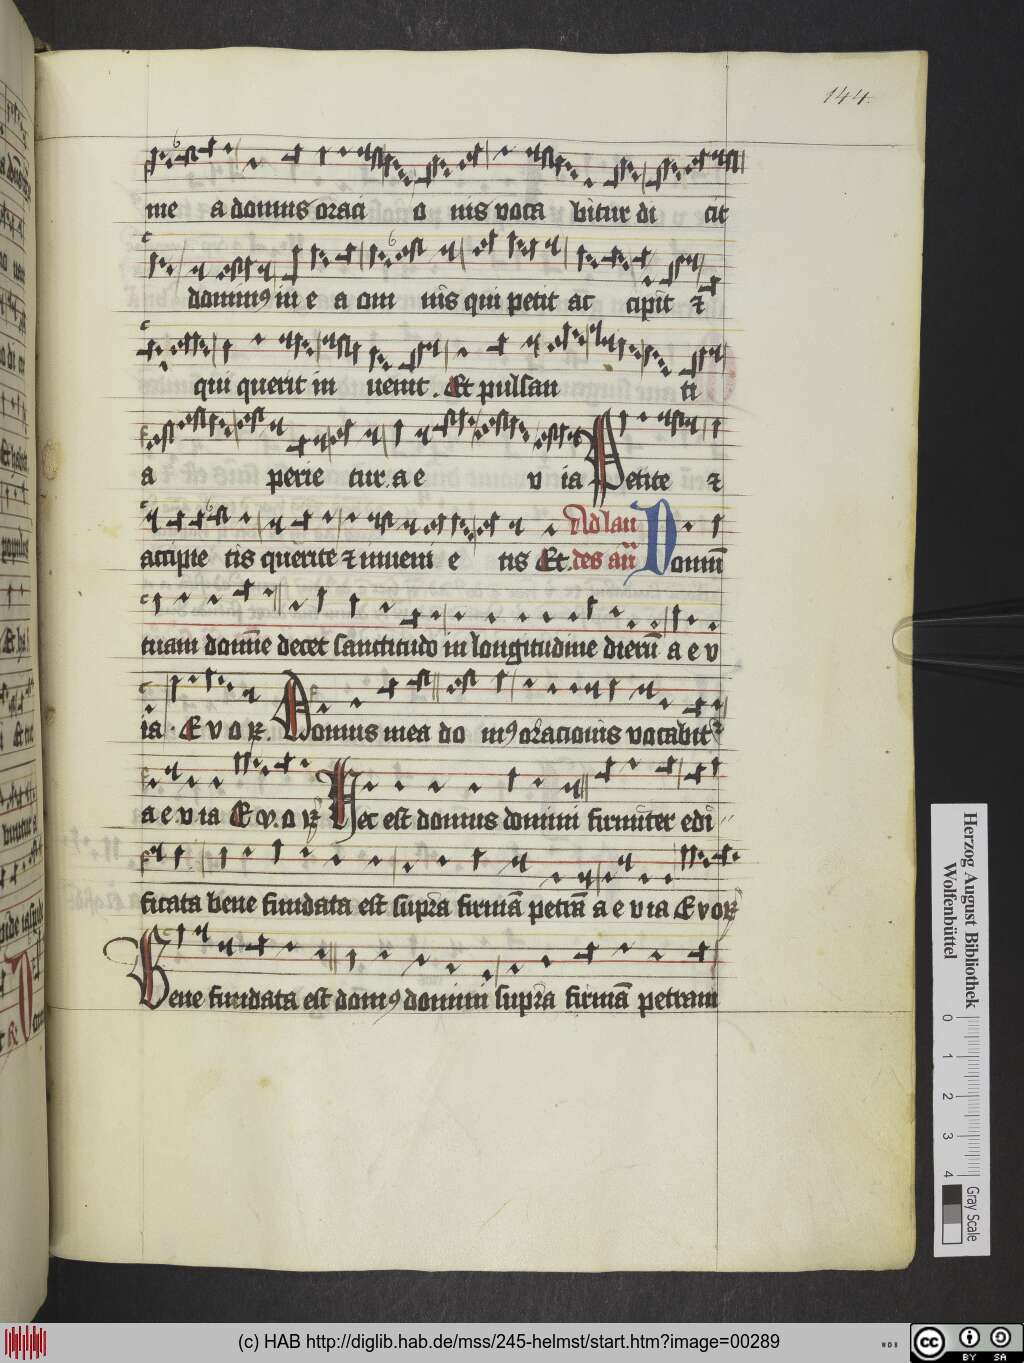 144.
me a domus oraci o nis voca bitur di cit
domin9 in e a om nis qui petit ac cipit ⁊
qui querit in venit. Et pulsan ti
a perie tur. a e v ia Petite ⁊
accipie tis querite ⁊ inveni e tis Et. Ad lau
des an̄ Domū
tuam domīe decet sanctitudo in longitudine dierū a e v
ia. E v o R. Domus mea do m9 oracionis vocabit᷑
a e v ia E v. o R Hec est domus domini firmiter edi
ficata bene fundata est supra firmā petrā a e v ia E v o R
Bene fundata est dom9 domini supra firmā petram
Herzog August Bibliothek
Wolfenbüttel
0 1 2 3 4
Gray Scale
(c) HAB http://diglib.hab.de/mss/245-helmst/start.htm?image=00289
WDB
cc BY SA